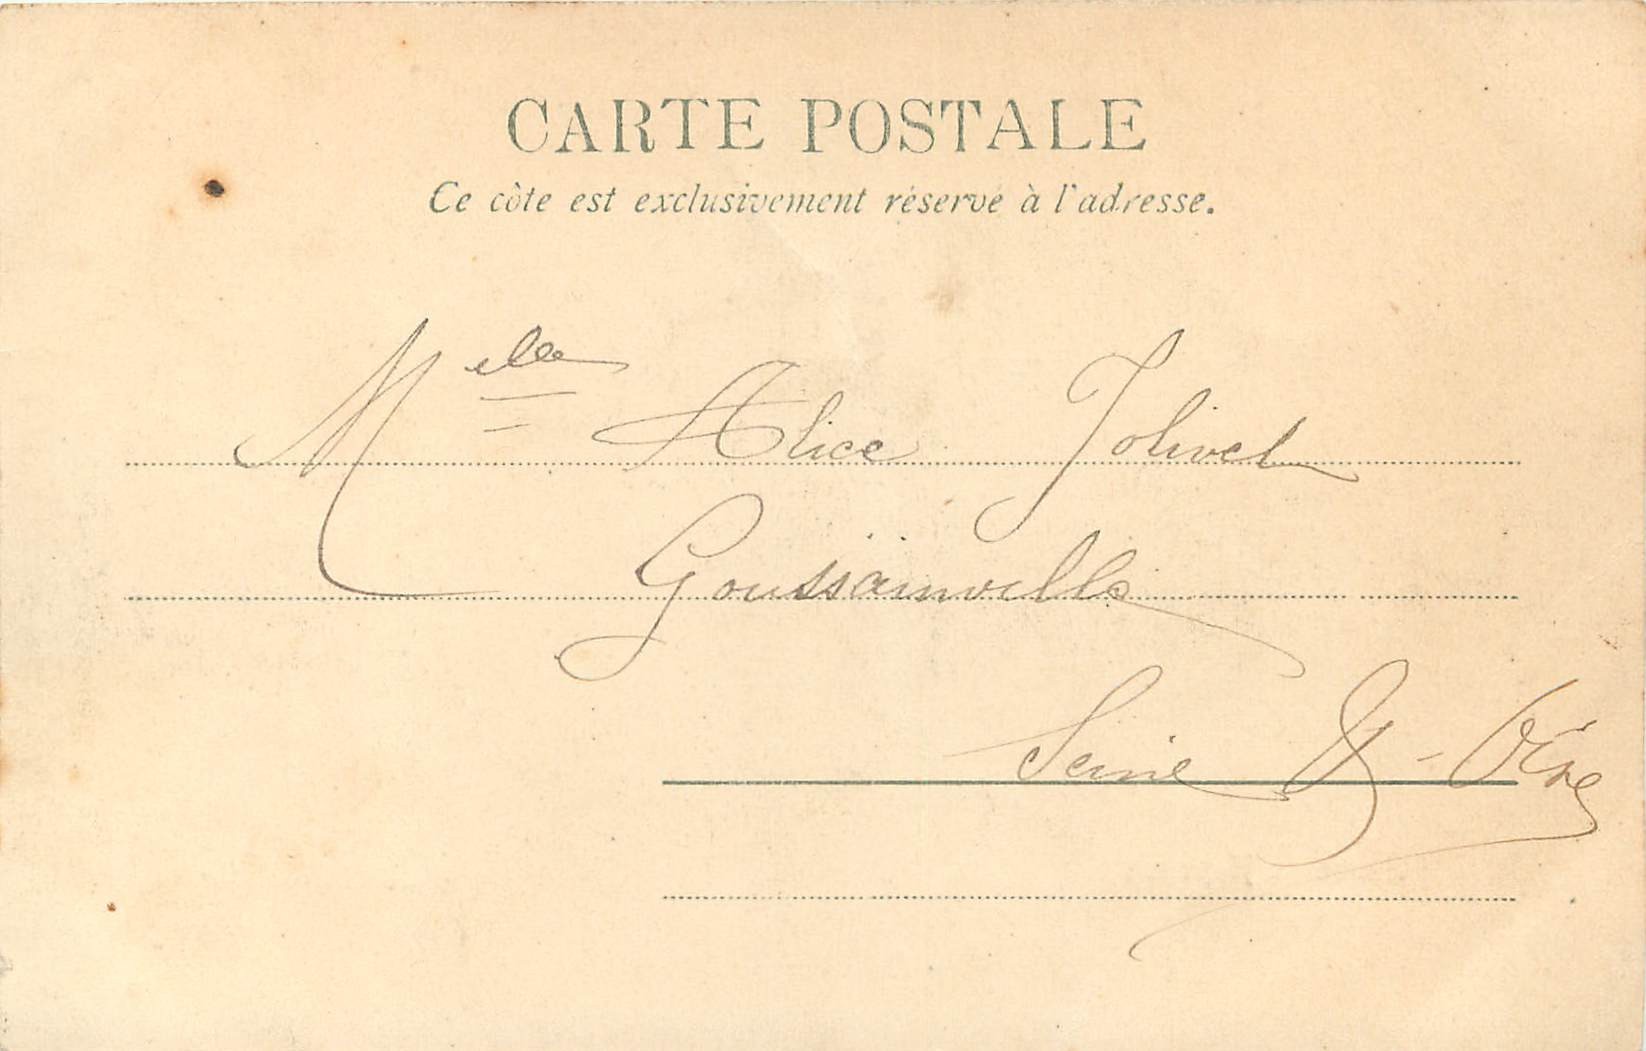 CARTE POSTALE
Ce côte est exclusivement réservé à l'adresse.
Melle Alice Jolivet
Goussainville
Seine & - Oise